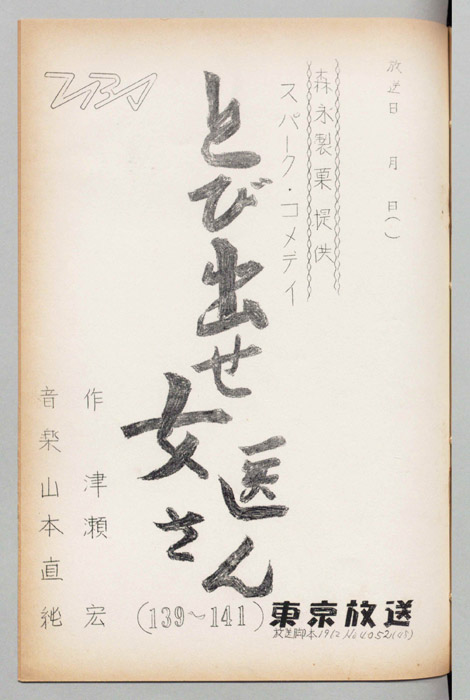 放送日　月　日（　）
森永製菓提供
スパーク・コメデイ
とび出せ
女医さん
作　津瀬　宏
音楽　山本直純
(139～141)
東京放送
TBS